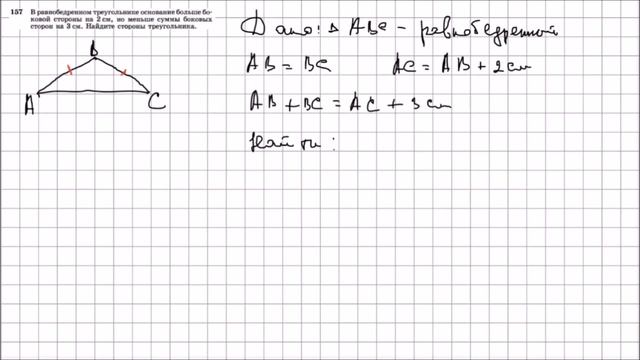 157 В равнобедренном треугольнике основание больше бо-
ковой стороны на 2 см, но меньше суммы боковых
сторон на 3 см. Найдите стороны треугольника.
B
A
C
Дано: Δ ABC - равнобедренный
AB = BC AC = AB + 2 см
AB + BC = AC + 3 см
Найти :